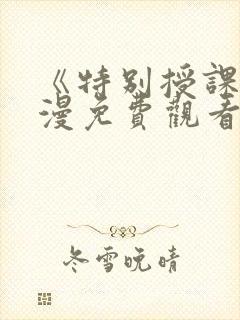 《特別授課
漫免費觀看
冬雪晚晴